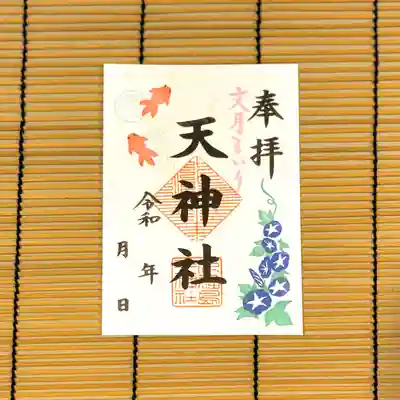 奉拝
文月まいり
天神社
令和 年
月 日